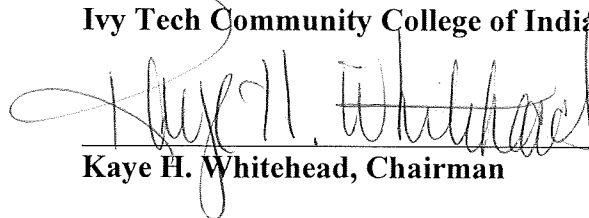 Ivy Tech Community College of India
Kaye H. Whitehead
Kaye H. Whitehead, Chairman